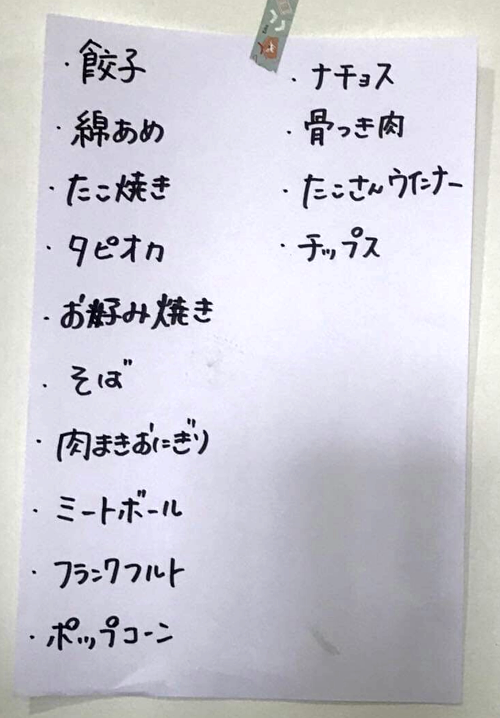 ・餃子
・綿あめ
・たこ焼き
・タピオカ
・お好み焼き
・そば
・肉まきおにぎり
・ミートボール
・フランクフルト
・ポップコーン
・ナチョス
・骨つき肉
・たこさんウインナー
・チップス